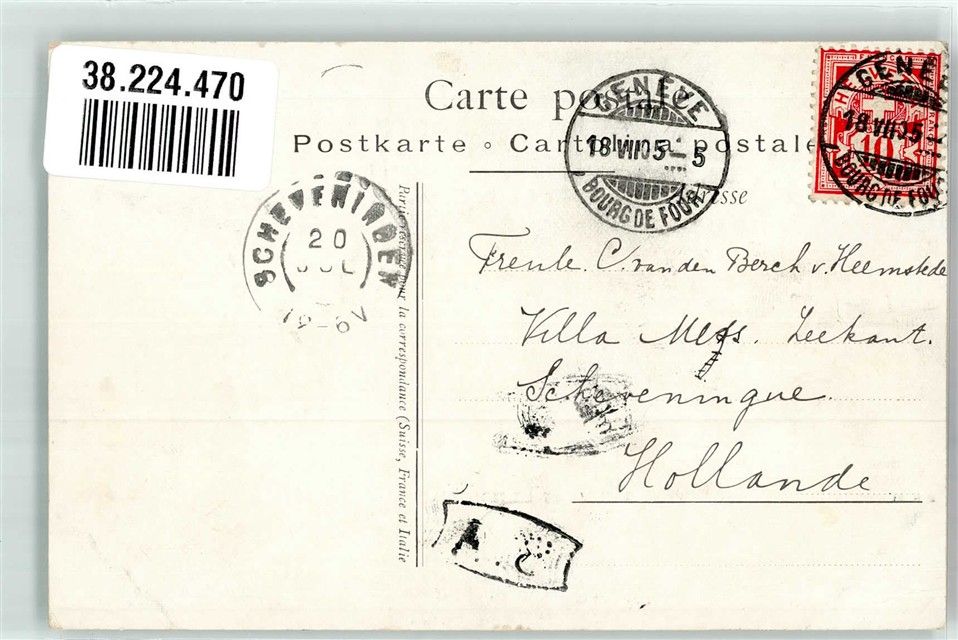 38.224.470
Carte postale
Postkarte ∘ Cartolina postale
Adresse
GENÈVE
18 VII 05 — 5
BOURG DE FOUR
GENÈVE
18 VII 05
BOURG DE FOUR
HELVETIA
FRANCO
10
SCHEVENINGEN
20
JUL
12-6V
Partie réservée pour la correspondance (Suisse, France et Italie
C. van den Berch v. Heemstede
Villa Leekant.
Scheveningue.
Hollande
A